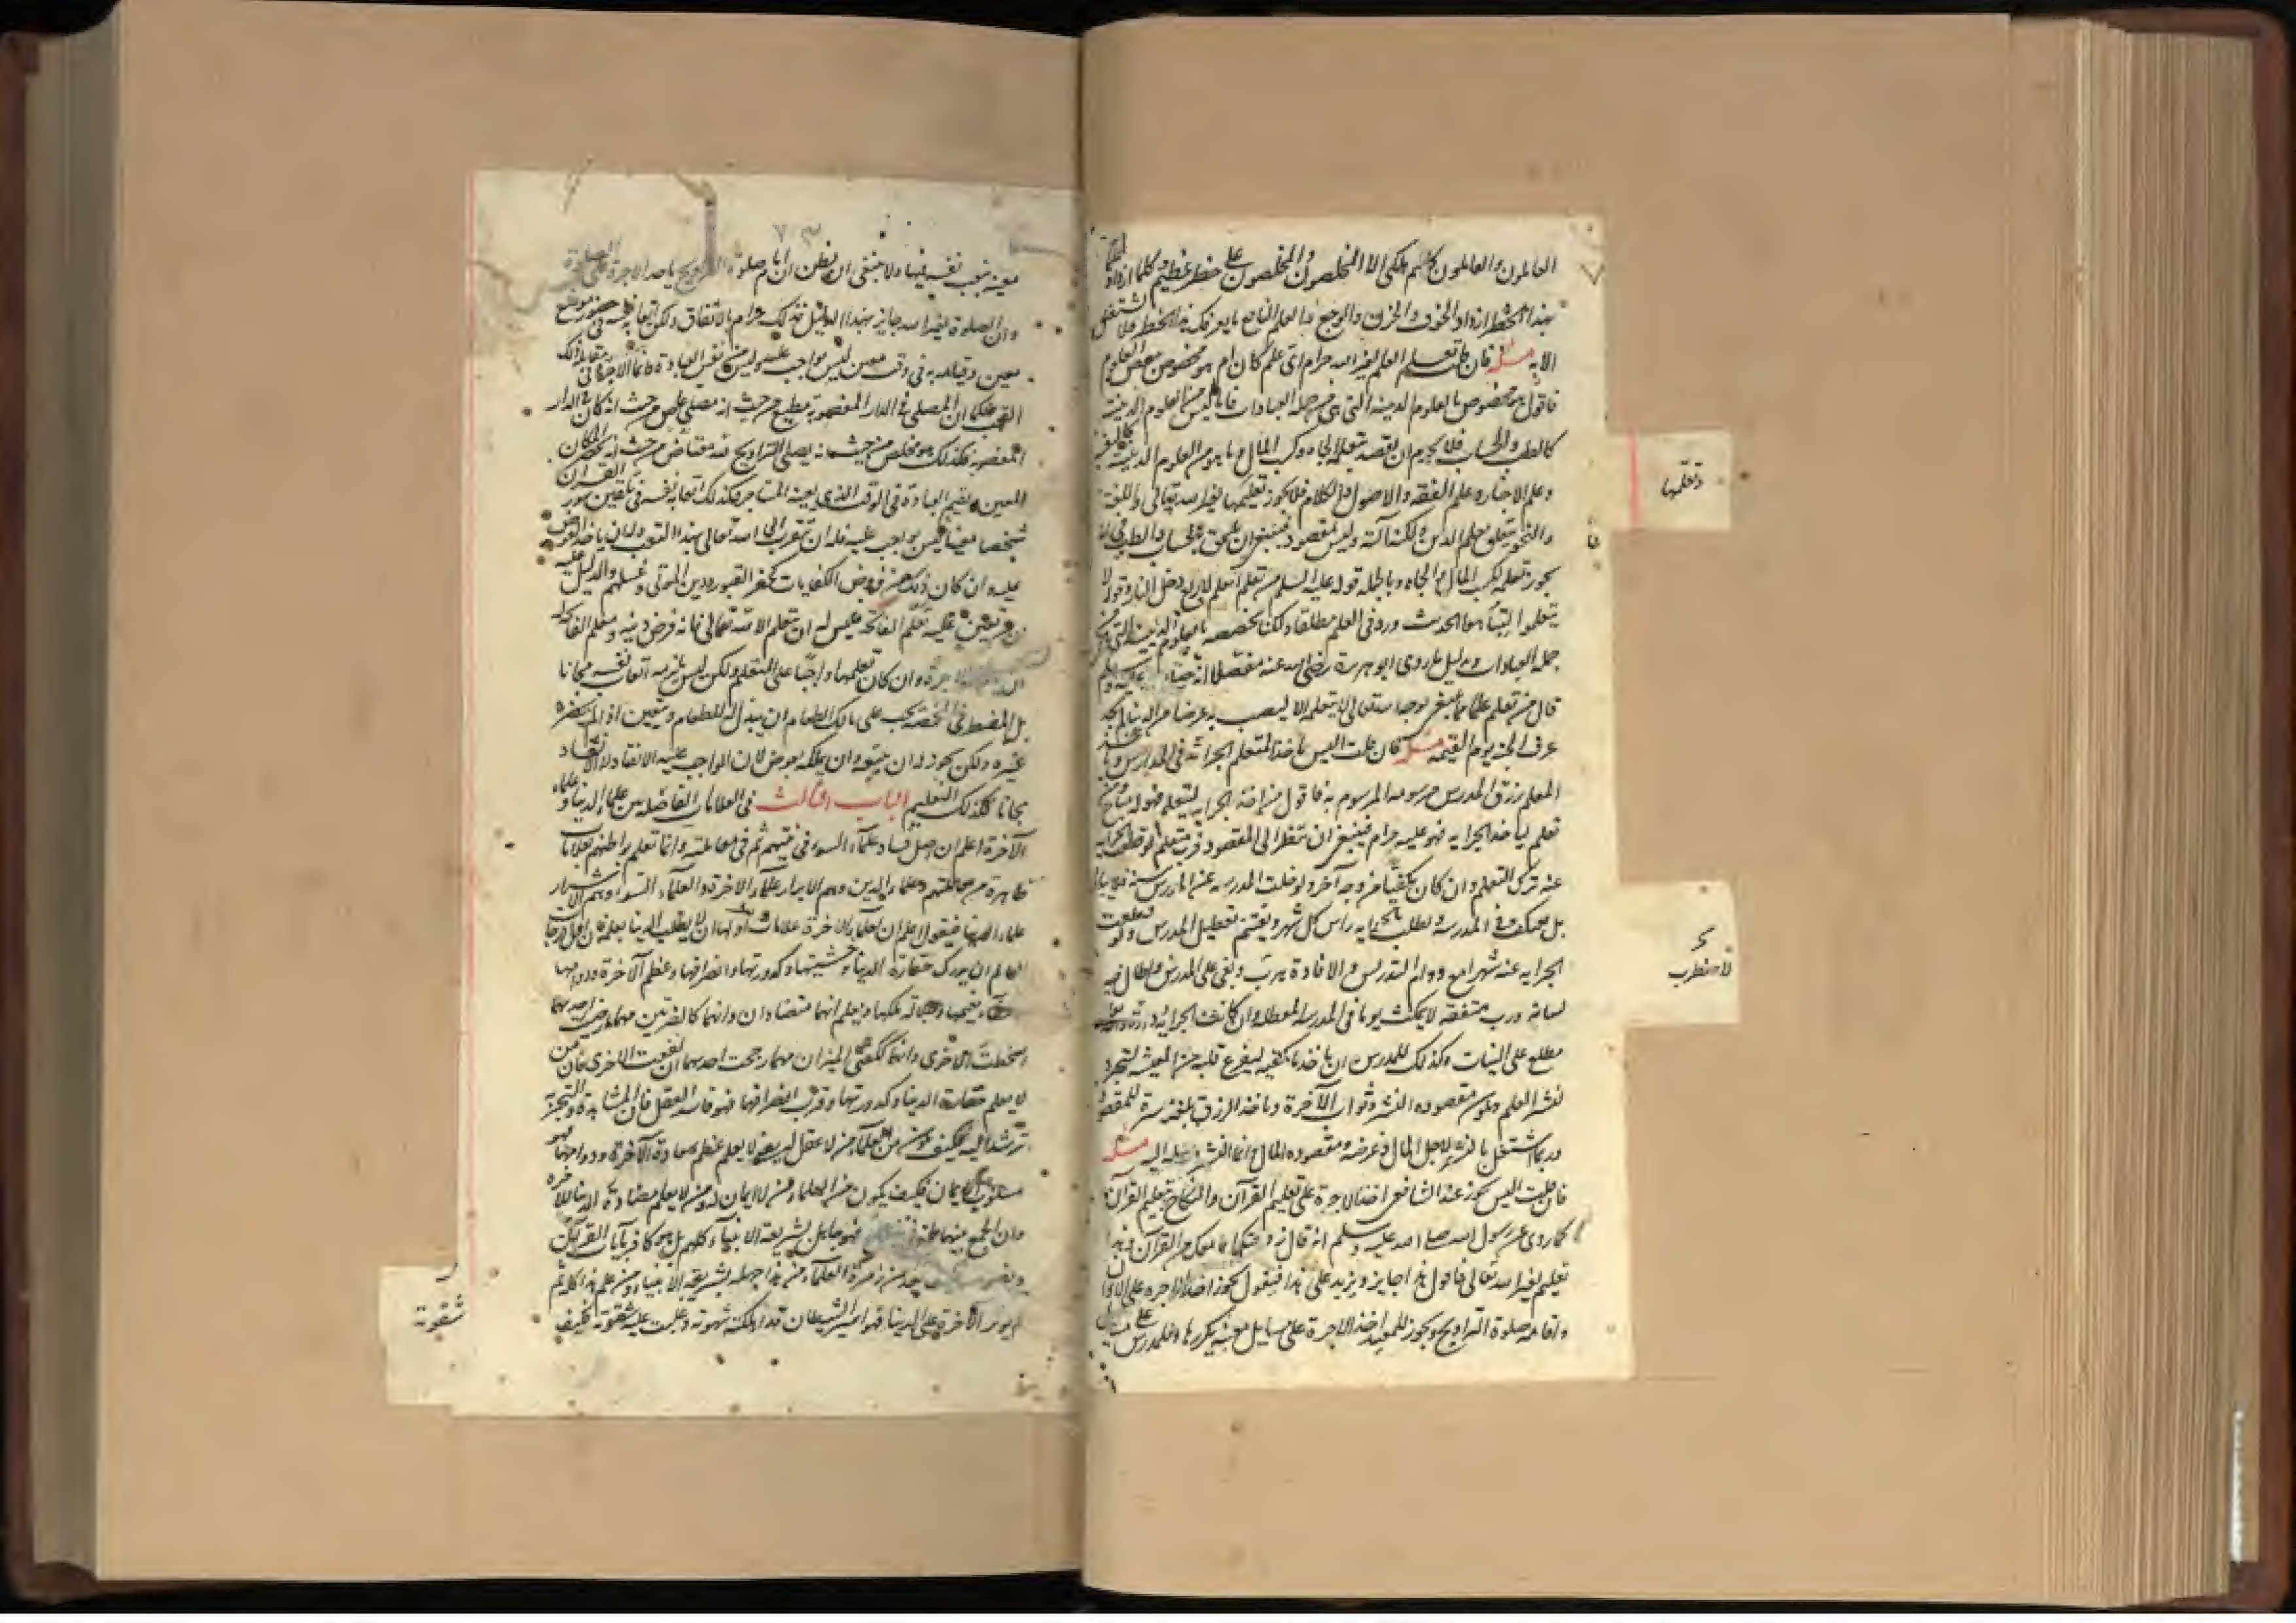 العالمون والعاملون كلهم هلكى الا المخلصون والمخلصون على خطر عظيم وكلما ازداد
بهذا الخطر ازداد الخوف والحزن والوجع فالعلم النافع ما يعرفك هذا الخطر فلا تشتغل
الا به مسئلة فان قلت تعلم العلم لغير الله حرام اى علم كان ام هو مخصوص ببعض العلوم
فاقول هو مخصوص بالعلوم الدينية التى هى من جملة العبادات فاما ما ليس من العلوم الدينية
كالطب والحساب فلا يحرم ان يقصد بتعلمه الجاه وكسب المال وما هو من العلوم الدينية
وعلم الاخبار وعلم الفقه والاصول والكلام فلا يجوز تعليمها لغير الله تعالى واللغة
والنحو يتعلق بعلم الدين ولكنه آلة وليس مقصود فينبغى ان يلحق بالحساب والطب فى ان
يجوز تعلمه لكسب المال والجاه وبالجملة قوله عليه السلم من تعلم العلم دخل النار وقوله لا
يتعلموا هذا الحديث ورد فى العلم مطلقا ولكنا نخصصه بالعلوم الدينية التى هى من
جملة العبادات بدليل ما روى ابو هريرة رضى الله عنه مفصلا انه
قال من تعلم علما مما يبتغى به وجه الله تعالى لا يتعلمه الا ليصيب به عرضا من الدنيا لم يجد
عرف الجنة يوم القيمة مسئلة فان قلت اليس ياخذ المتعلم الجراية فى المدارس
المعلم رزق المدرس مرسومه المرسوم به فاقول من اخذ الجراية ليتعلم فهو له مباح
تعلم لياخذ الجراية فهو عليه حرام فينبغى ان ينظر الى المقصود فرب متعلم لو قطع الجراية
عنه ترك التعلم وان كان مكفيا من وجه آخر ولو خلت المدرسة عن المدرس سنة فلا يبالى
بل يعتكف فى المدرسة ويطلب الجراية راس كل شهر ويغتنم تعطيل المدرس ولو قطعت
الجراية عنه شهرا مع دوام التدريس والافادة هرب وبغى على المدرس واطال فيه
لسانه ورب متفقه لا يمكث يوما فى المدرسة المعطلة وان كانت الجراية
مطلع على النيات وكذلك للمدرس ان ياخذ ما يكفيه ليفرغ قلبه من المعيشة لتجرد
لنشر العلم ويكون مقصوده النشر وثواب الآخرة وياخذ الرزق بلغة للمقصود
وربما اشتغل بالنشر لاجل المال وغرضه ومقصوده المال وانما النشر وسيلة اليه مسئلة
فان قلت اليس يجوز عند الشافعى اخذ الاجرة على تعليم القرآن والنكاح بتعليم القرآن
كما روى عن رسول الله صلى الله عليه وسلم انه قال زوجتكها بما معك من القرآن وهذا
تعليم لغير الله تعالى فاقول هذا جايز ونزيد على هذا فيقول يجوز اخذ الاجرة على الاذان
واقامة صلوة التراويح ويجوز للمعيد اخذ الاجرة على مسايل معينة يكررها وللمدرس على مسايل
وتعلمها
فاضطرب
٧٣
معينة يتعب نفسه فيها ولا ينبغى ان يظن ان امام صلوة التراويح ياخذ الاجرة على الصلوة
وان الصلوة لغير الله جايز بهذا التاويل فذلك حرام بالاتفاق ولكن اتعابه نفسه فى حضور موضع
معين وقيامه به فى وقت معين ليس بواجب عليه وليس من نفس العبادة فانما الاجرة فى مقابلة ذلك
التعب فكما ان المصلى فى الدار المغصوبة مطيع من حيث انه مصلى عاص من حيث انه كان فى الدار
المغصوبة فكذلك هو مخلص من حيث انه يصلى التراويح لله معتاض من حيث انه يحضر المكان
المعين ويقيم العبادة فى الوقت الذى يعينه المستاجر وكذلك اتعابه نفسه فى تلقين سور القرآن
شخصا معينا ليس بواجب عليه فله ان يتقرب الى الله تعالى بهذا التعب وله ان ياخذ العوض
عليه وان كان ذلك من فروض الكفايات كحفر القبور ودفن الموتى وغسلهم والدليل عليه
من تعين عليه تعلم الفاتحة فليس له ان يتعلم الا لله تعالى فانه فرض دينه ومعلم الفاتحة له
الاجرة وان كان تعلمها واجبا على المتعلم ولكن ليس يلزمه اتعاب نفسه مجانا
بل المضطر فى المخمصة يجب على مالك الطعام ان يبذل له الطعام ويتعين اذا لم يحضره
غيره ولكن يجوز له ان يبيعه وان يملكه بعوض لان الواجب عليه الانقاذ لا الانقاذ
مجانا فكذلك التعليم الباب الثالث فى العلامات الفاصلة بين علماء الدنيا وعلماء
الآخرة اعلم ان اصل فساد علماء السوء فى نيتهم ثم فى معاملتهم وانما تعلم بواطنهم بعلامات
ظاهرة من معاملتهم وعلماء الدين وهم الابرار علماء الاخرة والعلماء السوء وهم الاشرار
علماء الدنيا فيقول اعلم ان لعلماء الاخرة علامات اولها ان لا يطلب الدنيا بعلمه فان اقل درجات
العالم ان يدرك حقارة الدنيا وخستها وكدورتها وانصرافها وعظم الآخرة ودوامها
وصفاء نعيمها وجلالة ملكها ويعلم انهما متضادان وانهما كالضرتين مهما ارضيت احديهما
اسخطت الاخرى وانهما ككفتى الميزان مهما رجحت احديهما خفت الاخرى فان من
لا يعلم حقارة الدنيا وكدورتها وقرب انصرافها فهو فاسد العقل فان المشاهدة والتجربة
ترشد اليه فكيف يكون من العلماء من لا عقل له ومن لا يعلم عظم سعادة الآخرة ودوامها فهو
مسلوب الايمان فكيف يكون من العلماء من لا ايمان له ومن لا يعلم مضادة الدنيا للآخرة
وان الجمع بينهما فهو جاهل بشريعة الانبياء كلهم بل هو كافر بآيات القرآن
يعد من زمرة العلماء من هذا جهله بشريعة الانبياء ومن علم هذا كله ثم
لم يوثر الآخرة على الدنيا فهو اسير الشيطان قد اهلكته شهوته وغلبت عليه شقوته فكيف
شقوته